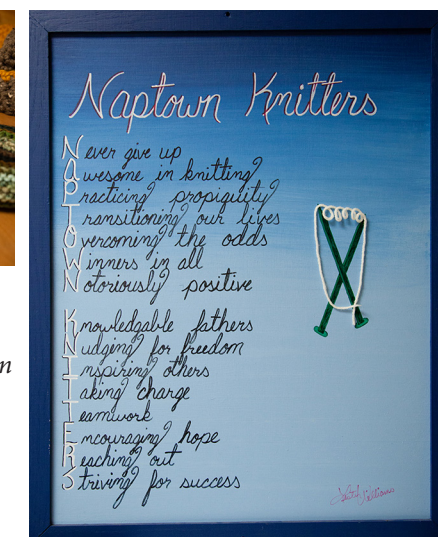 Naptown Knitters
Never give up
Awesome in knitting
Practicing propiquity
Transitioning our lives
Overcoming the odds
Winners in all
Notoriously positive
Knowledgable fathers
Nudging for freedom
Inspiring others
Taking charge
Teamwork
Encouraging hope
Reaching out
Striving for success